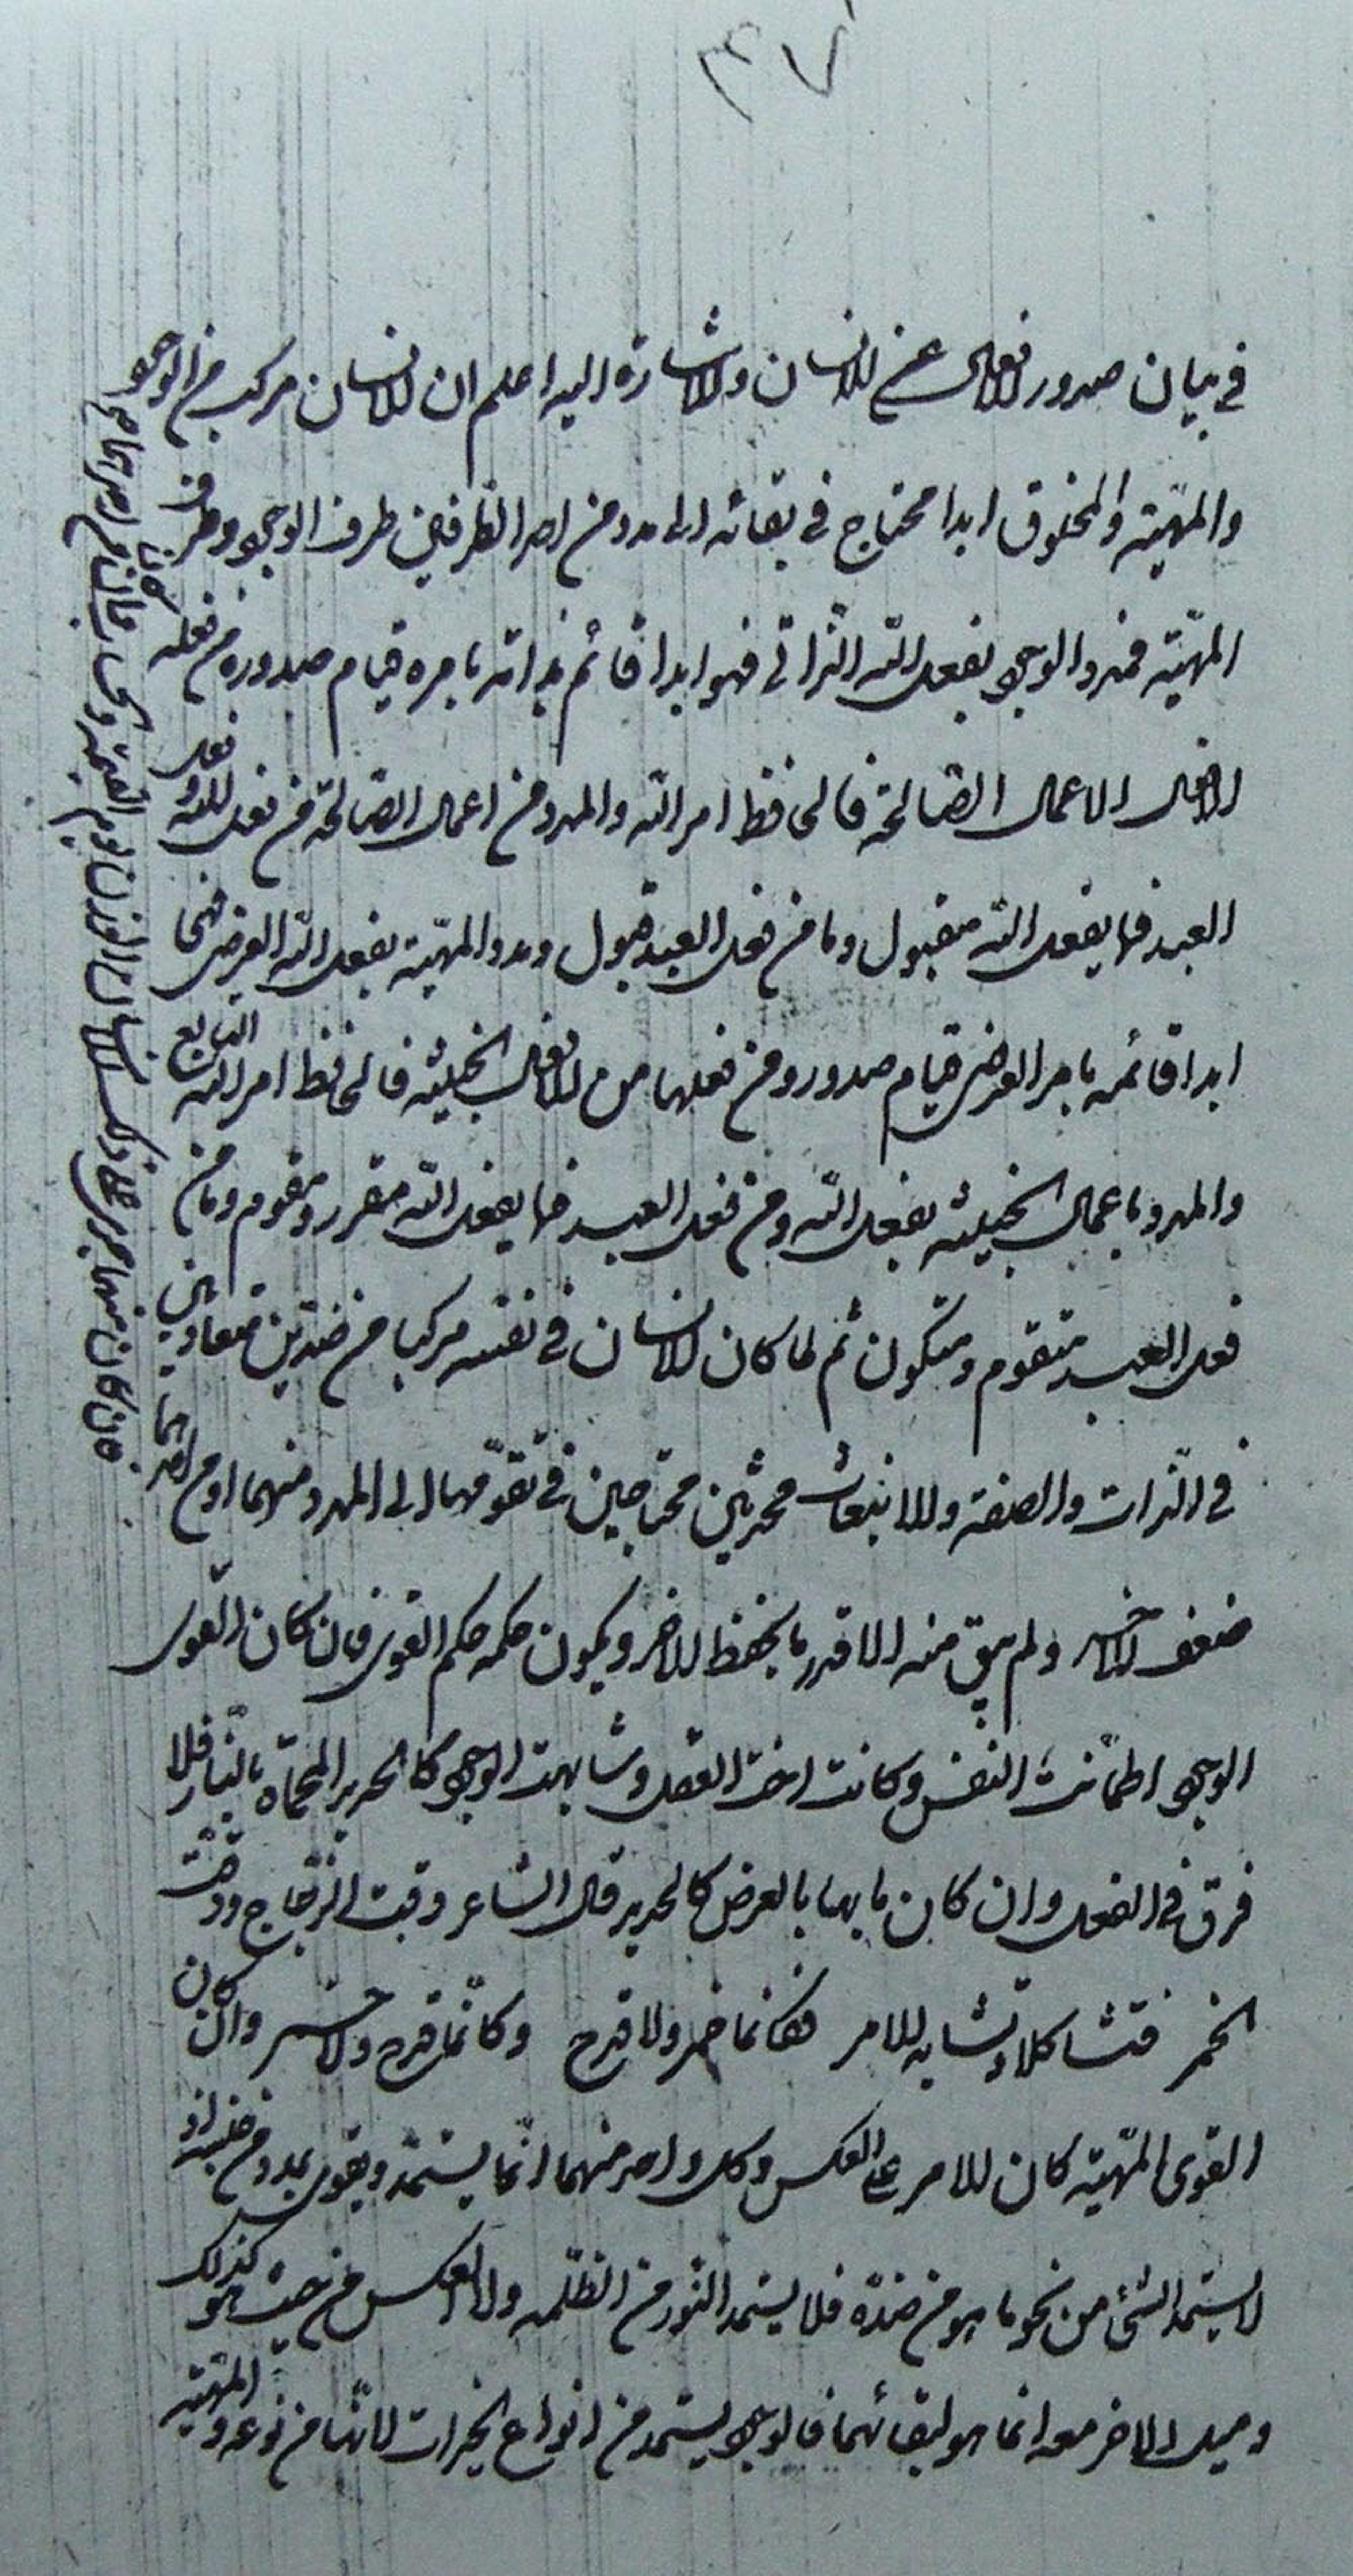 ٣٧
في بيان صدور الافعال عن الانسان والاشارة اليه اعلم ان الانسان مركب من الوجود
والمهيّة والمخلوق ابدا محتاج في بقائه الى مدد من احد الطرفين طرف الوجود وطرف
المهيّة فمدد الوجود بفعل الله الذاتي فهو ابدا قائم بذاته بامره قيام صدور ومن فعله
الافعال الاعمال الصالحة فالحافظ امر الله والمدد من اعمال الصالحة من فعل الله وفعل
العبد فما بفعل الله مقبول وما من فعل العبد قبول ومدد المهيّة بفعل الله العرضى فهى
ابدا قائمه بامر العرضى قيام صدور ومن فعلها من الافعال الخبيثه فالحافظ امر الله التابع
والمدد باعمال الخبيثه بفعل الله ومن فعل العبد فما بفعل الله مقرر ومقوم وما من
فعل العبد متقوم ومتكون ثم لما كان الانسان في نفسه مركبا من ضدين متعاديين
في الذات والصفة والانبعاث محدثين محتاجين في تقوّمهما الى المدد منهما او من احدهما
ضعف الاخر ولم يبق منه الا قدر ما يحفظ الاخر ويكون حكمه حكم القوى فان كان القوى
الوجود اطمأنت النفس وكانت اخت العقل وشابهت الوجود كالحديد المحماة بالنار فلا
فرق في الفعل وان كان ما بها بالعرض كالحديد قال الشاعر رقت الزجاج ورقت
الخمر فتشاكلا وتشابه الامر فكانما خمر ولا قدح وكانّما قدح ولا خمر وان كان
القوى المهيّة كان الامر على العكس وكل واحد منهما انّما يستمد ويقوى بمدد من جنسه اذ
لا يستمد الشئ من نحو ما هو من ضده فلا يستمد النور من الظلمه ولا العكس من حيث هو كذلك
وميل الاخر معه انما هو لبقائهما فالوجود يستمد من انواع الخيرات لانّها من نوعه والمهيّة